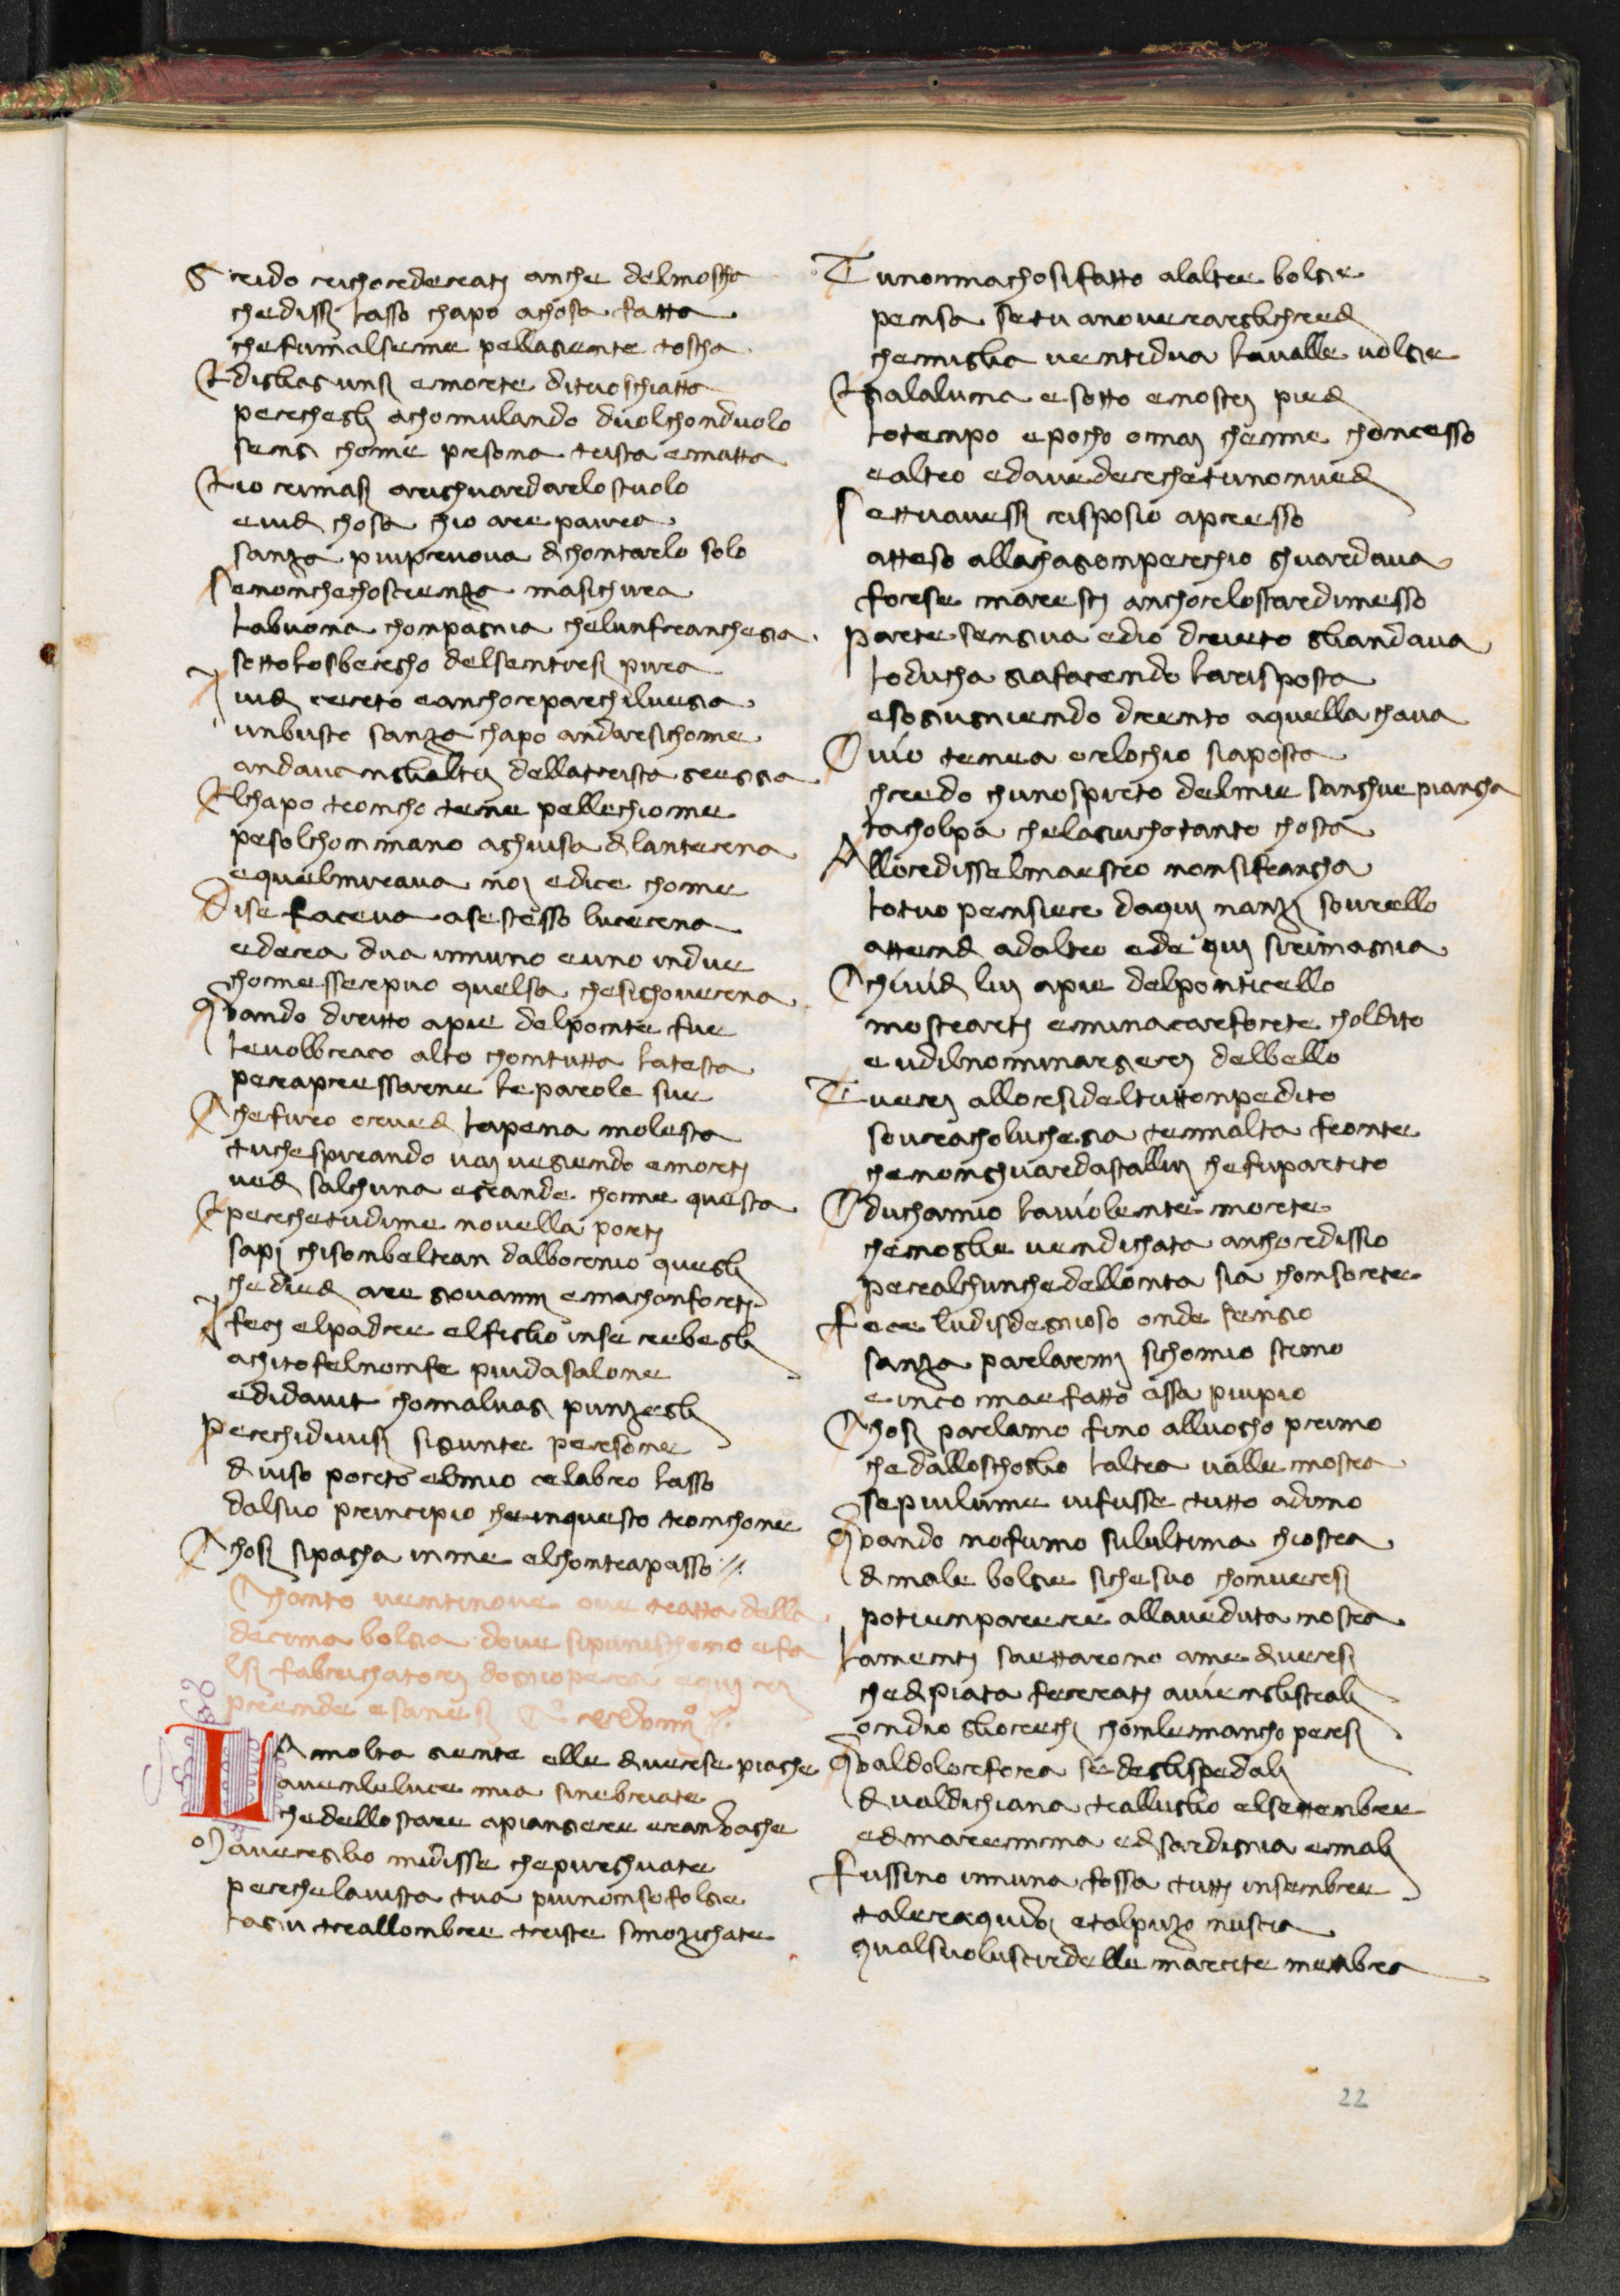 Grido richorderati anche delmoscha
chedissi lasso chapo achosa fatta
chefumalseme pellagiente toscha
Edisliagiunsi emorte dituoschiatta
percheglj achomulando duolchonduolo
sengi chome presona trista ematta
Eio rimasi arighuardarlostuolo
evidi chosa chio are paura
sanza piuprruova di chontarlo solo
Senonchechoscienza masichura
labuona chompagnia chelunfranchegia
sottolosbergho delsentirsi pura
I vidi cierto eanchor parchiluegia
unbusto sanza chapo andaresichome
andauanglialtri dellatrista greggia
Elchapo troncho tene pellechiome
pesolchonmano aghuisa dilanterna
equelmiraua noi edice ohme
Disе faceua asestesso lucerna
ederа dua innuno euno indue
chomesserpuo quelsa chesighouerna
Quando diritto apie delponte fue
leuolbraco alto chontutta latesta
perapressarne le parole sue
Chefuro oruedi lapena molesta
tuchespirando vai vegiendo emorti
vedi salchuna egrande chome questa
E perchetudime novella porti
sapi chisonbeltran dalbornio queglj
chediedi are giouanni emachonforti
I feci elpadre elfiglio inse rebeglj
achitofelnonfe piudasalone
edidauit chomaluagi punzeglj
Perchidiuisi sigiunte persone
diuiso porto elmio celabro lasso
dalsuo principio cheinquesto tronchone
Chosi sipacha inme elchontrapasso
Chanto ventinoue oue tratta della
decima bolgia doue sipunischono efa
lsi fabrichatori dogniopera equi ri
prende esanesi
LA molta giente elle diuerse piaghe
auenleluce mia sinebriate
chedellostare apiangere eranvaghe
Mavergilio midisse chepurghuate
perchelauista tua piunonsofolge
lagiu trallombre triste smozichate
Tunonmachosifatto alaltre bolge
pensa setu anouerarglichredi
chemiglia ventidua lavalle volge
Egialaluna e sotto enostri piedi
lotempo epocho omai chenne choncesso
ealtro edauederechetunonuedi
Settuauessi risposio apresso
atteso allachagionperchio ghuardaua
forse maresti anchorlostardimesso
Parte sengiua edio drieto gliandaua
loducha giafaciendo larisposta
esogiugniendo drento aquellachaua
Ouio tenea orlochio siaposta
chredo chunospirto delmie sanghue piangha
lacholpa chelagiuchotanto chosta
Allordisselmaestro nonsifrangha
lotuo pensiere daqui nanzi sourello
attendi adaltro ede qui sirimagnia
Chiuidi lui apie delponticello
mostrarti eminacareforte choldito
eudilnominargeri delbello
Tueri allorsideltuttonpedito
souracholuchegia tennalta fronte
chenonghuardastallui chefupartito
Oduchamio lauiolente morte
chenoglie vendichata anchordissio
peralchunchedellonta sia chonsorte
Fece ludisdegnioso onde sengio
sanza parlarmi sichomio stimo
einco maefatto assa piupio
Chosi parlamo fino alluogho primo
chedalloschoglio laltra ualle mostra
sepiulume uifusse tutto adimo
Quando nofumo sulultima chiostra
di male bolgie sichesuo chonuersi
potienparere allaueduta nostra
Lamenti saettarono ame diuersi
chedipiata ferrati auienglistrali
ondio gliorechi chonlemancho persi
Qualdolorefora sedeglispedali
diualdichiana trallulglio elsettenbre
edimaremma edisardignia emali
Fussino innuna fossa tutti insenbre
taleraquivi etalpuzo nuscia
qualsuoluscirdelle marcite menbra
22